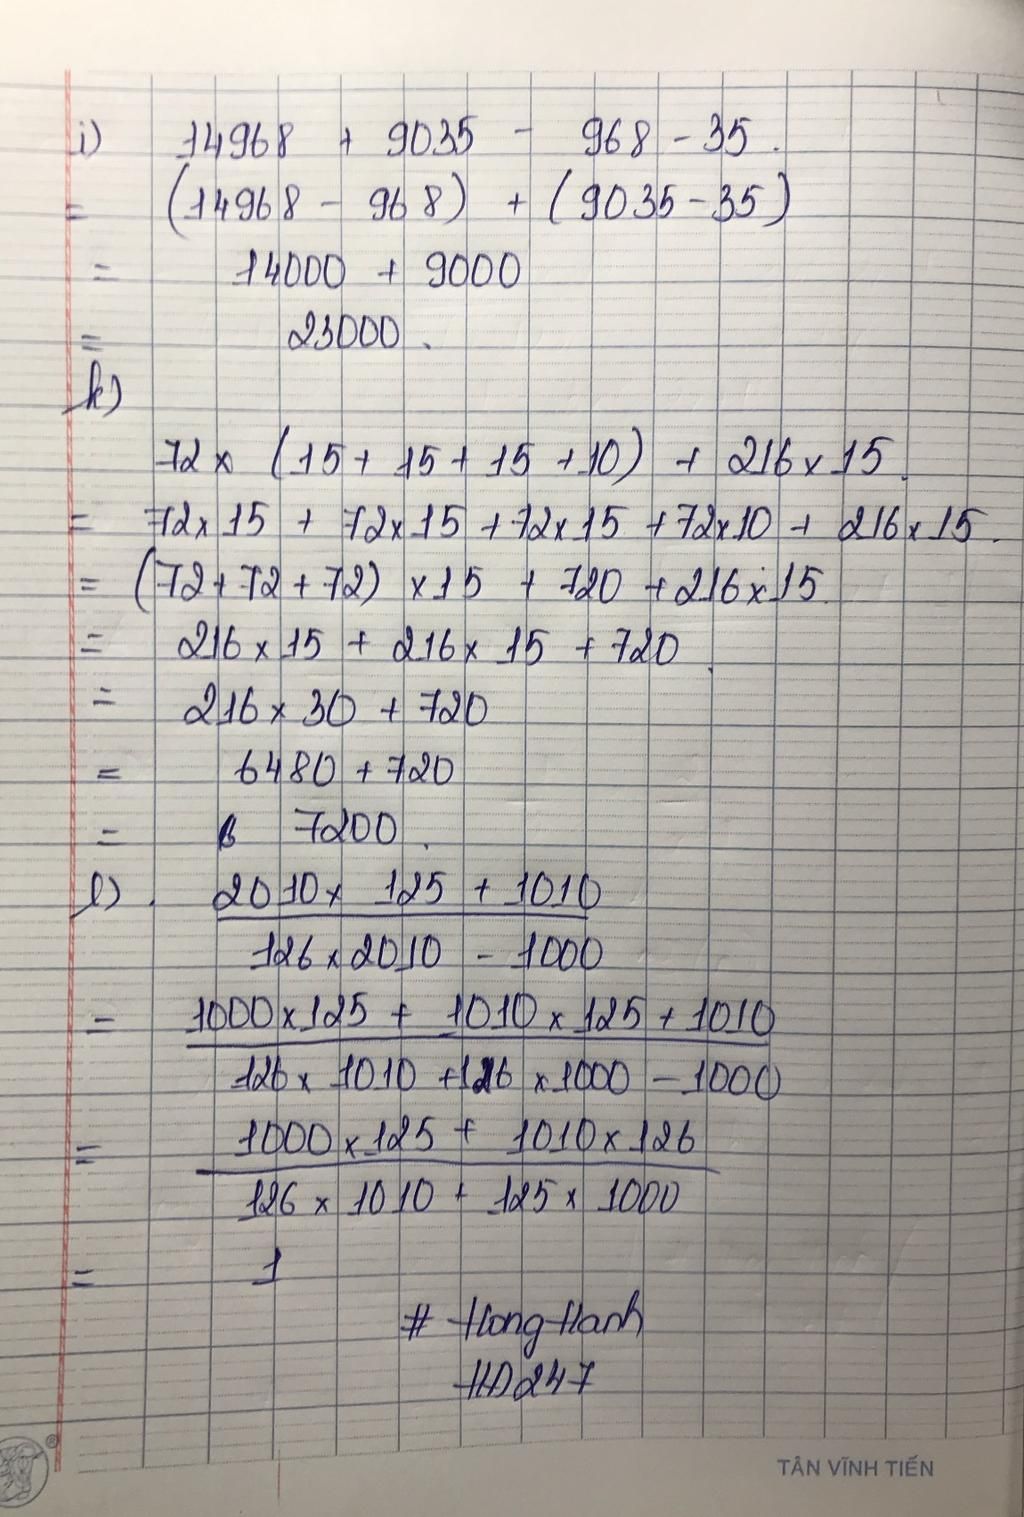 i) 14968 + 9035 - 968 - 35.
= (14968 - 968) + (9035 - 35)
= 14000 + 9000
= 23000.
k)
72 x (15 + 15 + 15 + 10) + 216 x 15.
= 72 x 15 + 72 x 15 + 72 x 15 + 72 x 10 + 216 x 15.
= (72 + 72 + 72) x 15 + 720 + 216 x 15.
= 216 x 15 + 216 x 15 + 720.
= 216 x 30 + 720
= 6480 + 720
= 7200.
l). 2010 x 125 + 1010
126 x 2010 - 1000
= 1000 x 125 + 1010 x 125 + 1010
126 x 1010 + 126 x 1000 - 1000
= 1000 x 125 + 1010 x 126
126 x 1010 + 125 x 1000
= 1
# Hong Hanh
HD247
TÂN VĨNH TIẾN